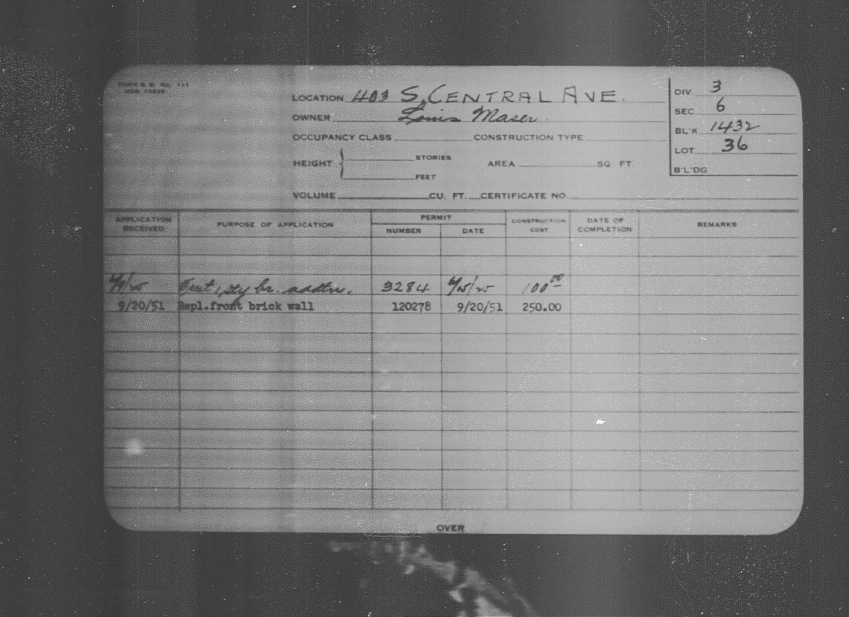 FORM B. B. No.
LOCATION 403 S. CENTRAL AVE.
OWNER Louis Maser
OCCUPANCY CLASS CONSTRUCTION TYPE
HEIGHT STORIES FEET AREA SQ. FT.
VOLUME CU. FT. CERTIFICATE NO.
DIV. 3
SEC 6
BL'K 1432
LOT 36
B'L'DG
APPLICATION RECEIVED PURPOSE OF APPLICATION PERMIT NUMBER DATE CONSTRUCTION COST DATE OF COMPLETION REMARKS
br. addtn. 3284 100.00
9/20/51 Repl.front brick wall 120278 9/20/51 250.00
OVER